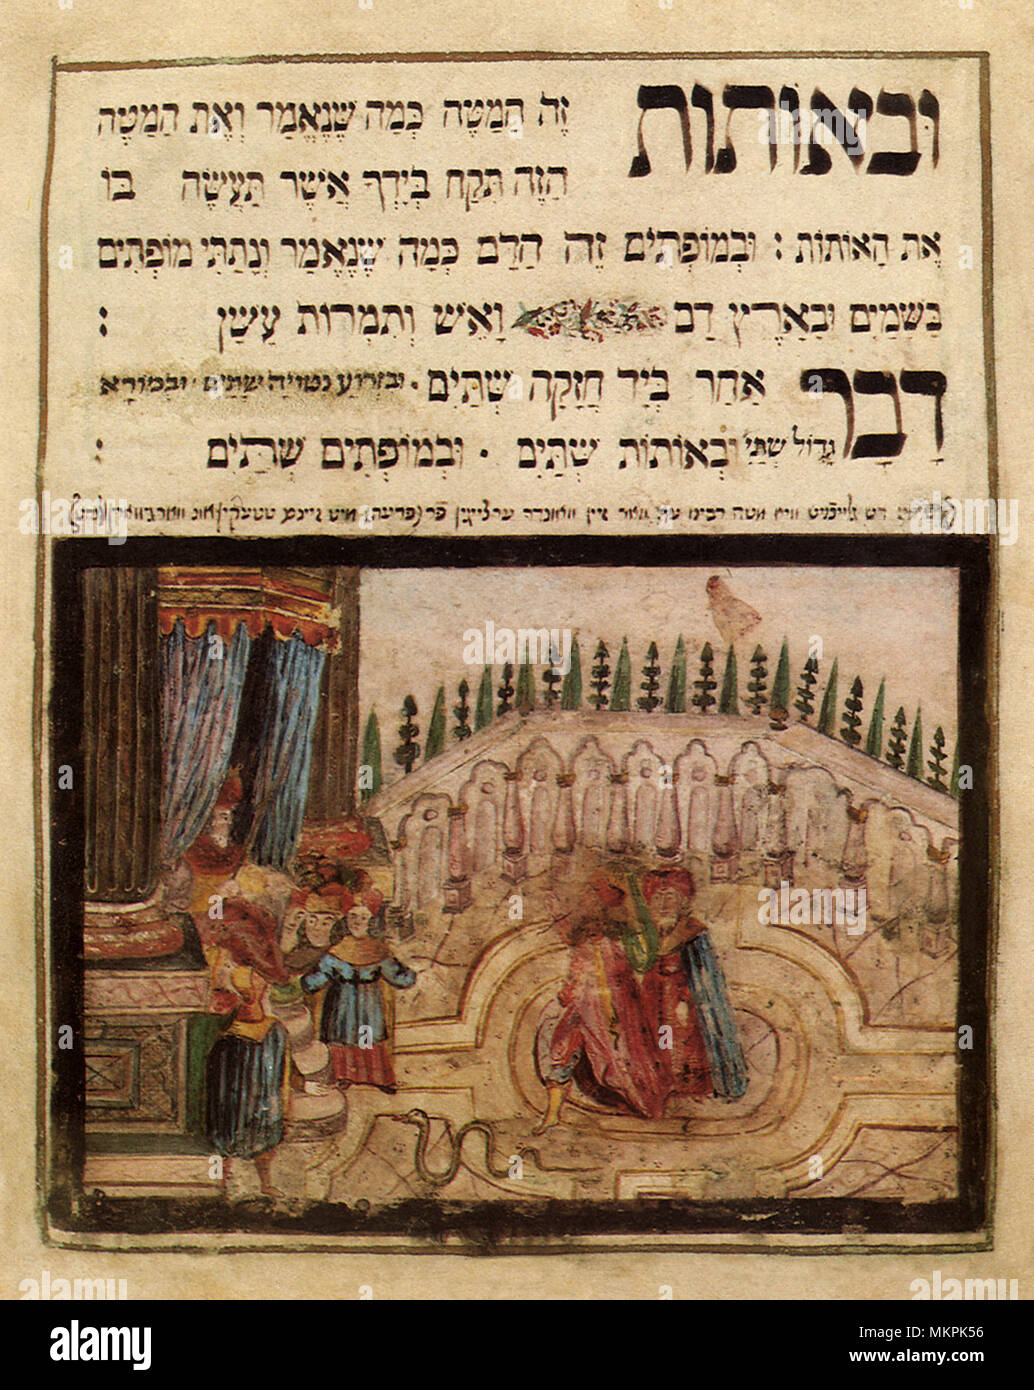 וּבְאוֹתוֹת זֶה הַמַטֶה כְּמָה שֶׁנֶאֱמַר וְאֶת הַמַטֶה
הַזֶה תִּקַח בְּיָדְךָ אֲשֶׁר תַּעֲשֶׂה בּוֹ
אֶת הָאוֹתוֹת : וּבְמוֹפְתִים זֶה הַדָם כְּמָה שֶׁנֶאֱמַר וְנָתַתִּי מוֹפְתִים
בַּשָׁמַיִם וּבָאָרֶץ דָם וָאֵשׁ וְתִמְרוֹת עָשָׁן :
דָבָר אַחַר בְּיָד חֲזָקָה שְׁתַּיִם . ובזרוע נטויה שתים . ובמורא
גָדוֹל שְׁתַּיִ' וּבְאוֹתוֹת שְׁתַּיִם . וּבְמוֹפְתִים שְׁתַּיִם :
משה רבינו
alamy
alamy
Image ID: MKPK56
www.alamy.com